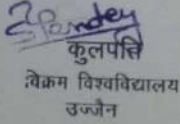 Pandey
कुलपति
विक्रम विश्वविद्यालय
उज्जैन